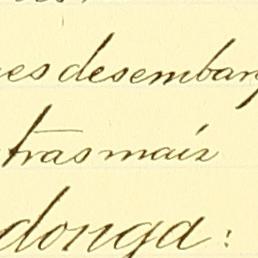 es desembar
tras maiz
donga: